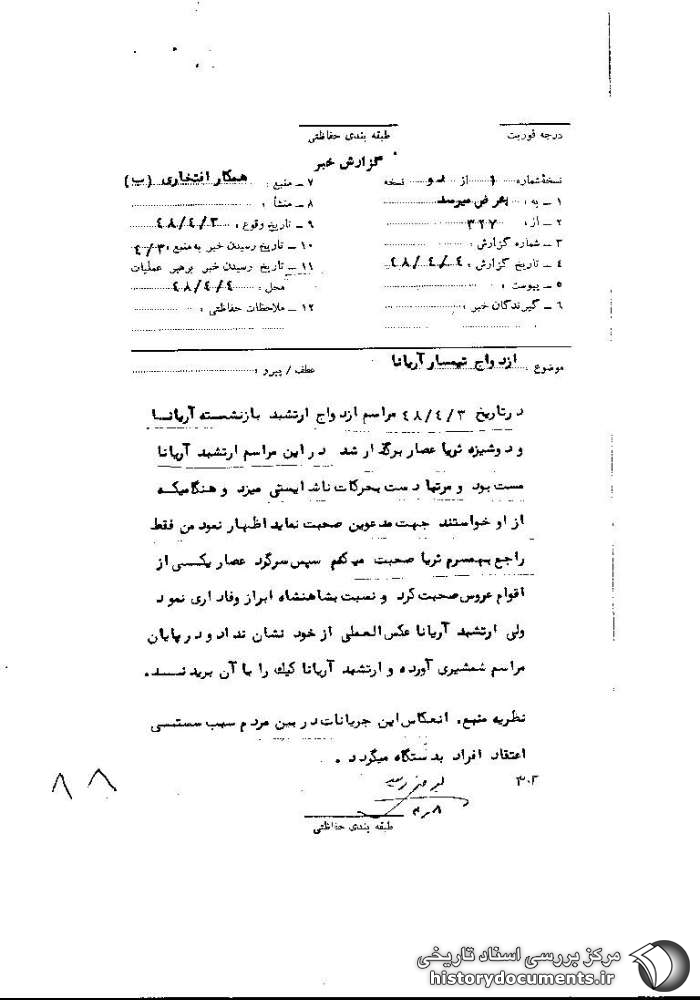 درجه فوریت
طبقه بندی حفاظتی
گزارش خبر
نسخهٔ شماره ۱ از دو نسخه
۱ ـ به : بعرض میرسد
۲ ـ از : ۳۲۷
۳ ـ شماره گزارش :
۴ ـ تاریخ گزارش : ۴۸/۴/۴
۵ ـ پیوست :
۶ ـ گیرندگان خبر :
۷ ـ منبع : همکار افتخاری (ب)
۸ ـ منشأ :
۹ ـ تاریخ وقوع : ۴۸/۴/۳
۱۰ ـ تاریخ رسیدن خبر به منبع : ۴/۳
۱۱ ـ تاریخ رسیدن خبر برهبر عملیات
محل : ۴۸/۴/۴
۱۲ ـ ملاحظات حفاظتی :
موضوع : ازدواج تیمسار آریانا
عطف / پیرو :
درتاریخ ۴۸/۴/۳ مراسم ازدواج ارتشبد بازنشسته آریانا
و دوشیزه ثریا عصار برگذار شد در این مراسم ارتشبد آریانا
مست بود و مرتبا دست بحرکات ناشایستی میزد و هنگامیکه
از او خواستند جهت مدعوین صحبت نماید اظهار نمود من فقط
راجع بهمسرم ثریا صحبت میکنم سپس سرگرد عصار یکسی از
اقوام عروس صحبت کرد و نسبت بشاهنشاه ابراز وفاداری نمود
ولی ارتشبد آریانا عکس العملی از خود نشان نداد و در پایان
مراسم شمشیری آورده و ارتشبد آریانا کیک را با آن بریدند.
نظریه منبع. انعکاس این جریانات در بین مردم سبب سستی
اعتقاد افراد بدستگاه میگردد .
۳۰۲
۴/۸
طبقه بندی حفاظتی
۸۸
مرکز بررسی اسناد تاریخی
historydocuments.ir